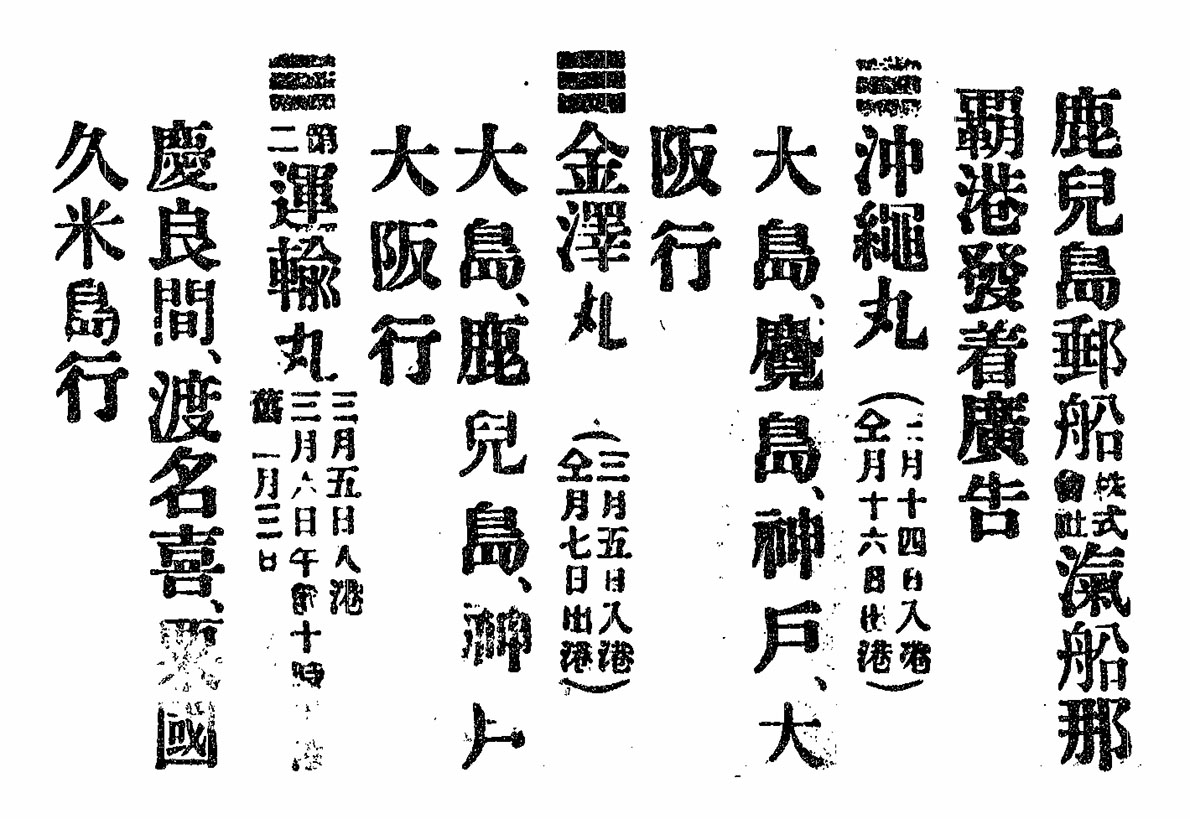 鹿兒島郵船株式會社滊船那
覇港發着廣告
三沖繩丸
(月十四日入港
仝月十六日出港)
大島、麑島、神戶、大
阪行
三金澤丸
(三月五日入港
仝月七日出港)
大島、鹿兒島、神戶
大阪行
三第二運輸丸
三月五日入港
三月六日午前十時
舊一月三日
慶良間、渡名喜、粟國
久米島行